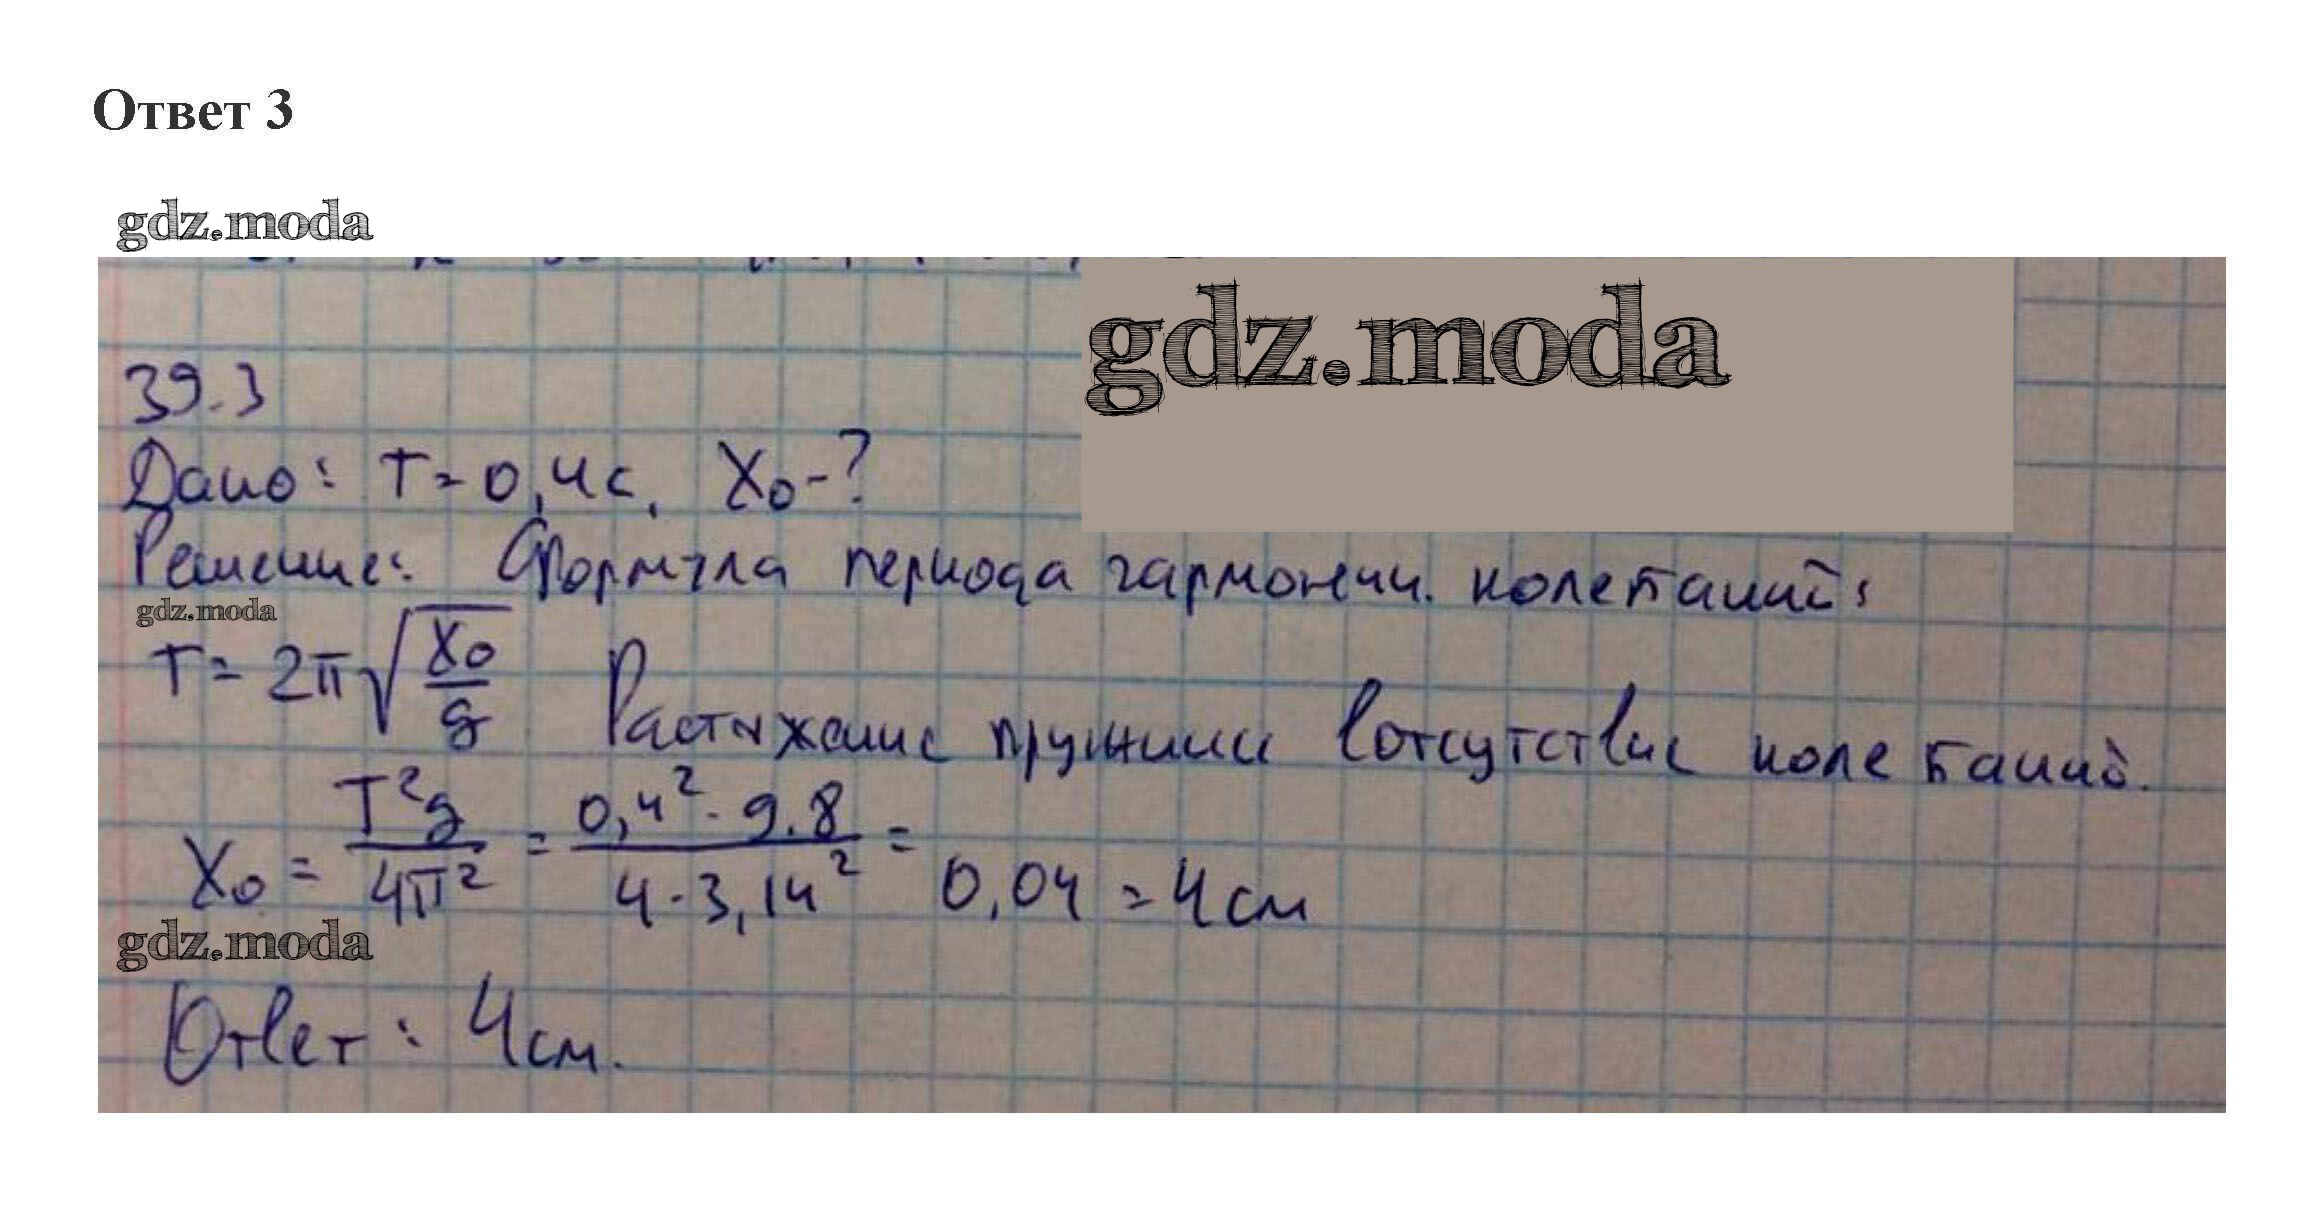 Ответ 3
gdz.moda
gdz.moda
39.3
Дано: T = 0,4с. X₀ - ?
Решение: Формула периода гармонич. колебаний:
gdz.moda
T = 2π√(X₀/g) Растяжение пружины в отсутствие колебаний.
X₀ = T²g/4π² = 0,4² · 9.8/4 · 3,14² = 0,04 = 4 см
gdz.moda
Ответ: 4 см.